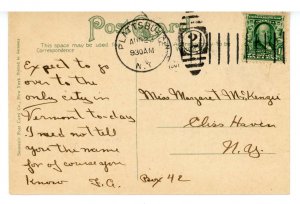 Post Card
This space may be used for
Correspondence
PLATTSBURGH
AUG
9 30 AM
N.Y.
2
Expect to go
over to the
only city in
Vermont to-day
I need not tell
you the name
for of course you
know
Miss Margaret McKenzie
Cliss Haven
N.Y.
Box 42